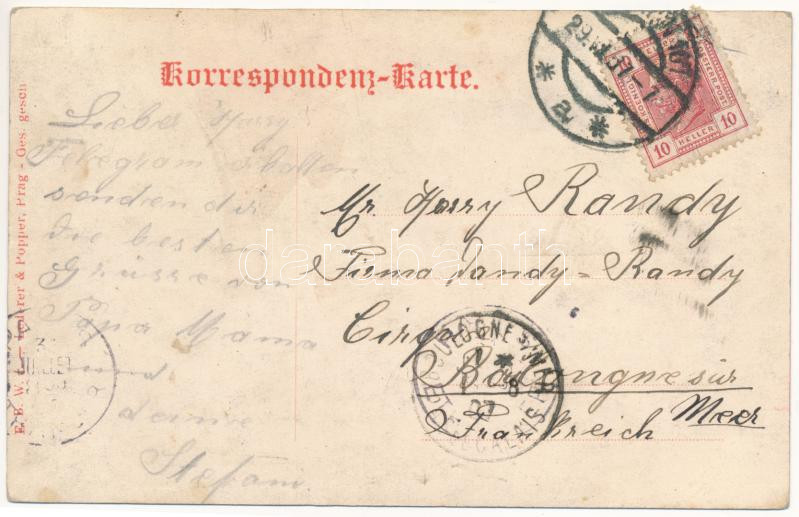 Korrespondenz-Karte.
10 HELLER 10
E. B. W. L. – Lederer & Popper, Prag - Ges. gesch
Lieber Harry
Telegram erhalten
senden dir
die besten
Grüsse von
Papa Mama
und
deine
Stefani
Mr. Harry Randy
Firma Dandy-Randy
Cirque
Boulongne sur
Meer
Frankreich
BOULOGNE-S-MER
PAS-DE-CALAIS
darabanth